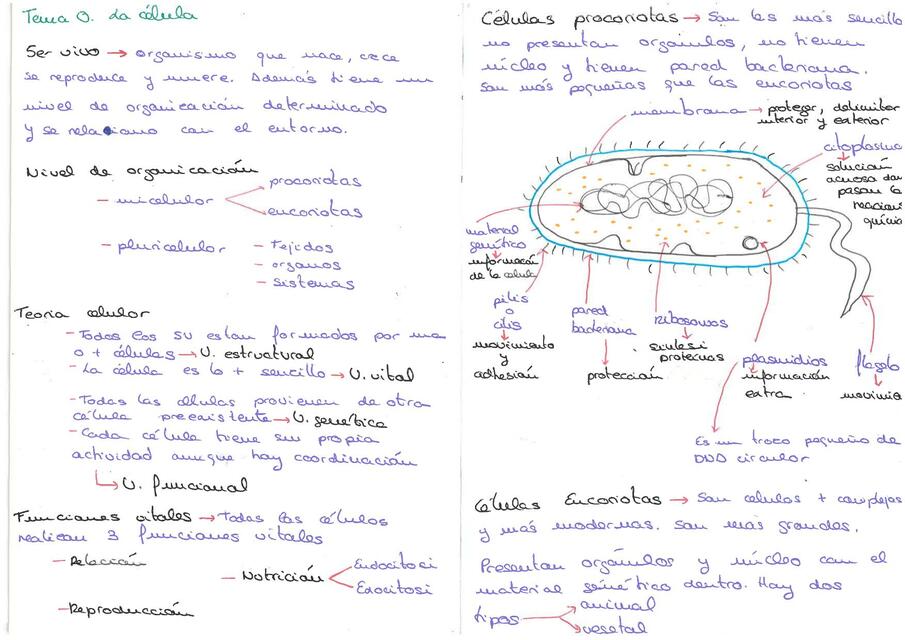 Tema 0. La célula
Ser vivo → organismo que nace, crece
se reproduce y muere. Además tiene un
nivel de organización determinado
y se relaciona con el entorno.
Nivel de organización
- unicelular
procariotas
eucariotas
- pluricelular
- Tejidos
- organos
- sistemas
Teoria celular
- Todos los sv estan formados por una
o + células → U. estructural
- La célula es lo + sencillo → U. vital
- Todas las células provienen de otra
célula preexistente → U. genética
- Cada célula tiene su propia
actividad aunque hay coordinación
U. funcional
Funciones vitales → Todas las células
realizan 3 funciones vitales
- Relación
- Nutrición
Endocitosi
Exocitosi
- Reproducción
Células procariotas → Son las más sencilla
no presentan orgánulos, no tienen
núcleo y tienen pared bacteriana.
son más pequeñas que las eucariotas
membrana → proteger, delimitar
interior y exterior
citoplasma
solución
acuosa don
pasan la
reaccion
química
material
genético
información
de la celula
pilis
o
cilis
movimiento
y
adhesión
pared
bacteriana
protección
Ribosomas
sintesi
proteinas
plasmidios
información
extra
flagelo
movimie
Es un trozo pequeño de
DND circular
Células Eucariotas → Son celulas + complejas
y más modernas. son más grandes.
Presentan orgánulos y núcleo con el
material genético dentro. Hay dos
tipos
animal
vegetal